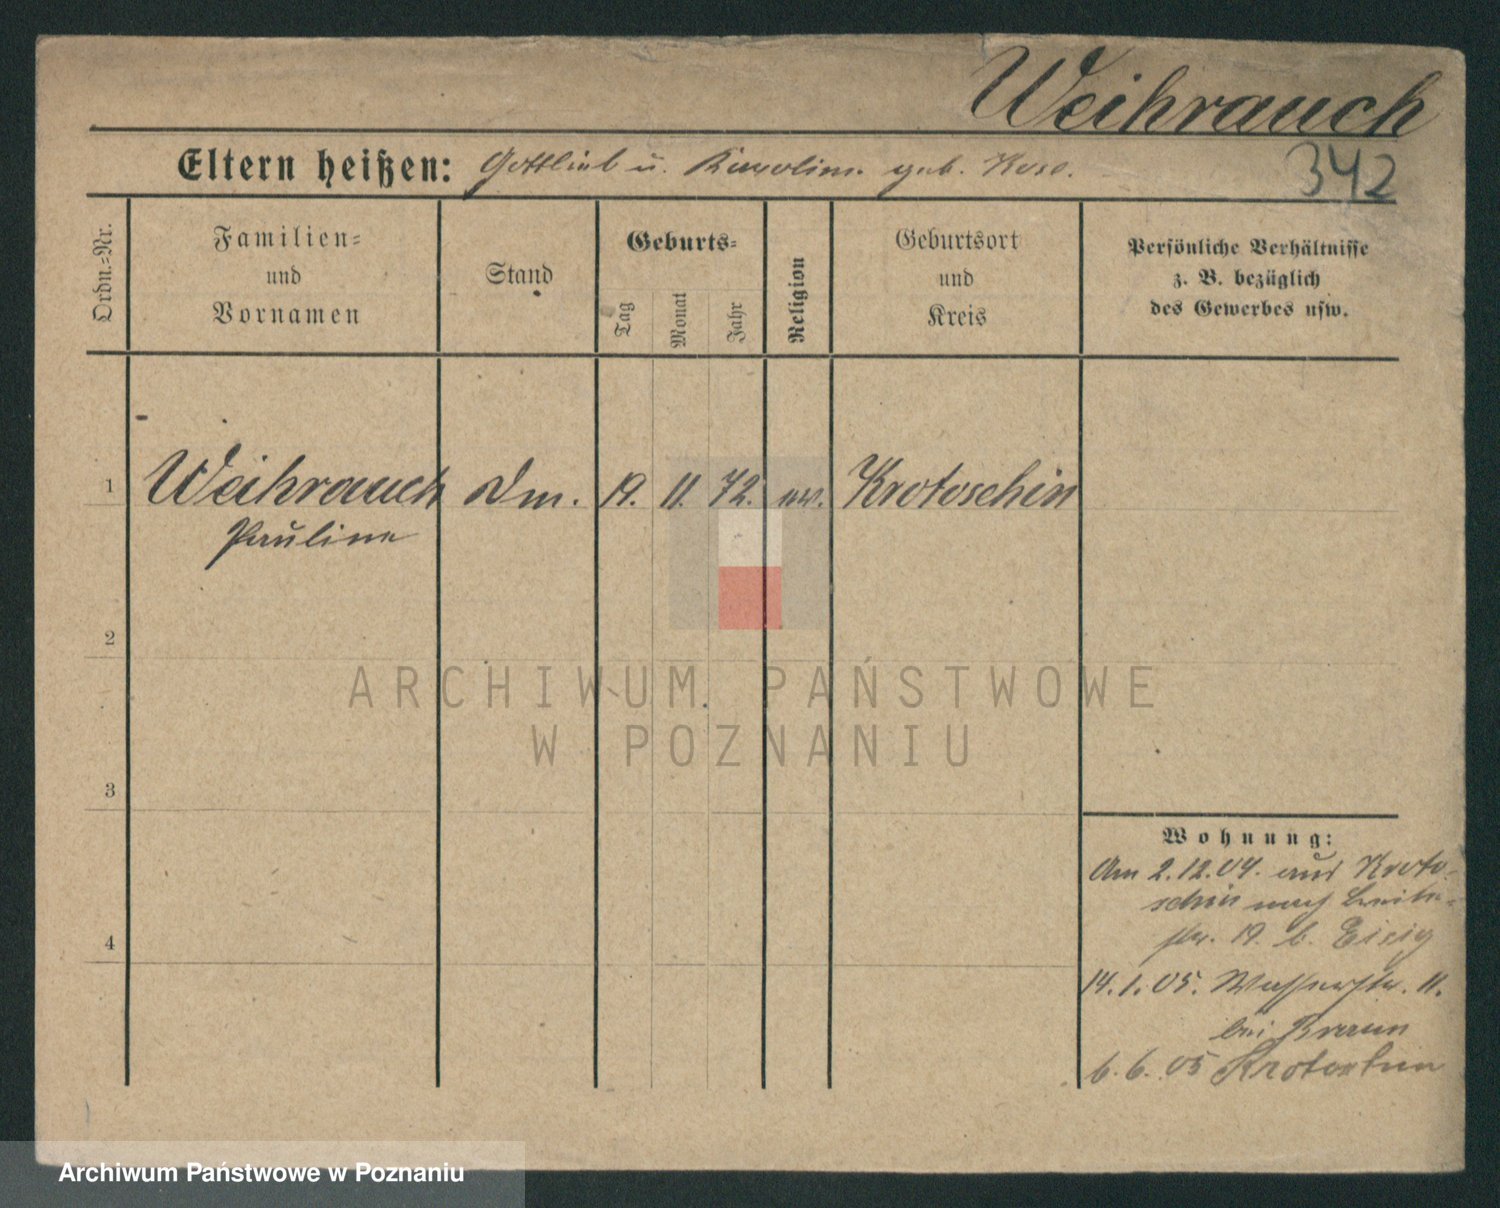 Weihrauch
Eltern heißen: Gottlieb u. Karoline geb. Kose.
342
Ordn.-Nr.
Familien-
und
Vornamen
Stand
Geburts-
Tag
Monat
Jahr
Religion
Geburtsort
und
Kreis
Persönliche Verhältnisse
z. B. bezüglich
des Gewerbes usw.
1 Weihrauch Dm. 19. 11. 72. ev. Krotoschin
Pauline
2
3
4
Wohnung:
Am 2.12.04. aus Kroto-
schin nach Breite-
str. 19. b. Eisig
14.1.05. Wasserstr. 11.
bei Braun
6.6.05 Krotoschin
ARCHIWUM PAŃSTWOWE
W POZNANIU
Archiwum Państwowe w Poznaniu